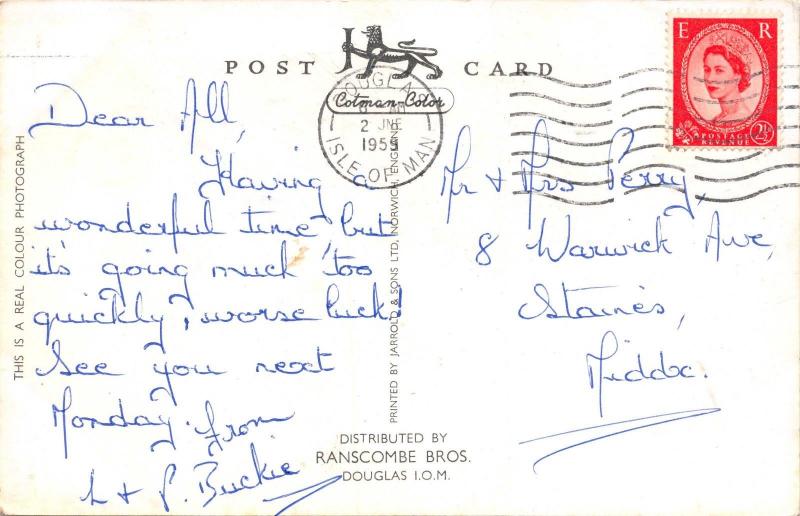 POST CARD
Cotman-Color
E R
POSTAGE
REVENUE
2½D
DOUGLAS
2 JNE
1959
ISLE OF MAN
Dear All,
Having a
wonderful time, but
it's going much too
quickly, worse luck!
See you next
Monday. from
L + P. Buckie
Mr + Mrs Perry,
8 Warwick Ave,
Staines,
Middx.
THIS IS A REAL COLOUR PHOTOGRAPH
PRINTED BY JARROLD & SONS LTD, NORWICH, ENGLAND
DISTRIBUTED BY
RANSCOMBE BROS.
DOUGLAS I.O.M.